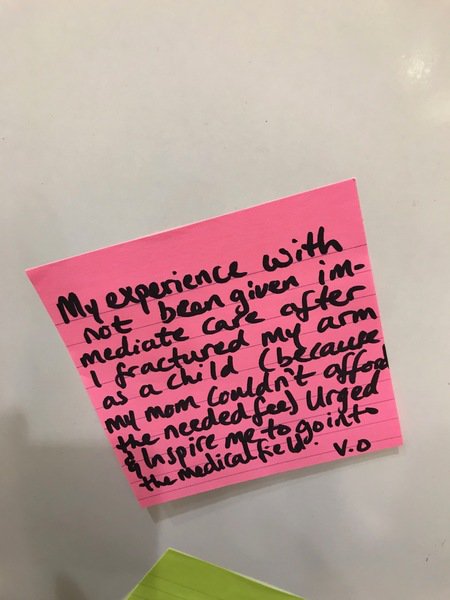 My experience with
not been given im-
mediate care after
I fractured my arm
as a child (because
my mom couldn't afford
the needed fee) Urged
& Inspire me to go into
the medical field.
V.O